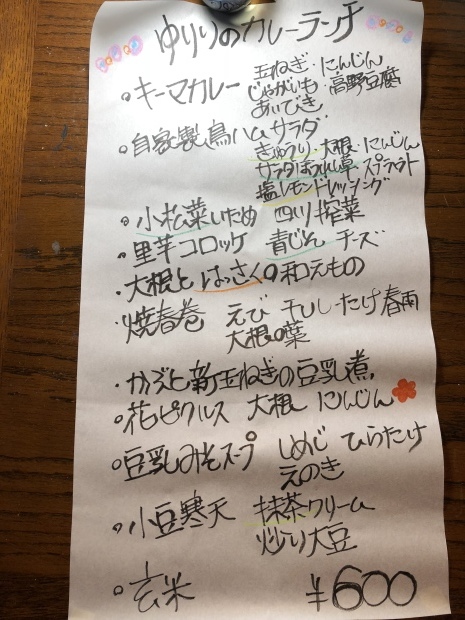 ゆりりのカレーランチ
。キーマカレー 玉ねぎ・にんじん
じゃがいも・高野豆腐
あいびき
。自家製鳥ハムサラダ
きゅうり・大根・にんじん
サラダほうれん草 スプラウト
塩レモンドレッシング
。小松菜いため 四川搾菜
・里芋コロッケ 青じそ チーズ
・大根とはっさくの和えもの
・焼春巻 えび 干ししいたけ 春雨
大根の葉
・かぶと新玉ねぎの豆乳煮
。花ピクルス 大根 にんじん
・豆乳みそスープ しめじ ひらたけ
えのき
。小豆寒天 抹茶クリーム
炒り大豆
。玄米 ¥600